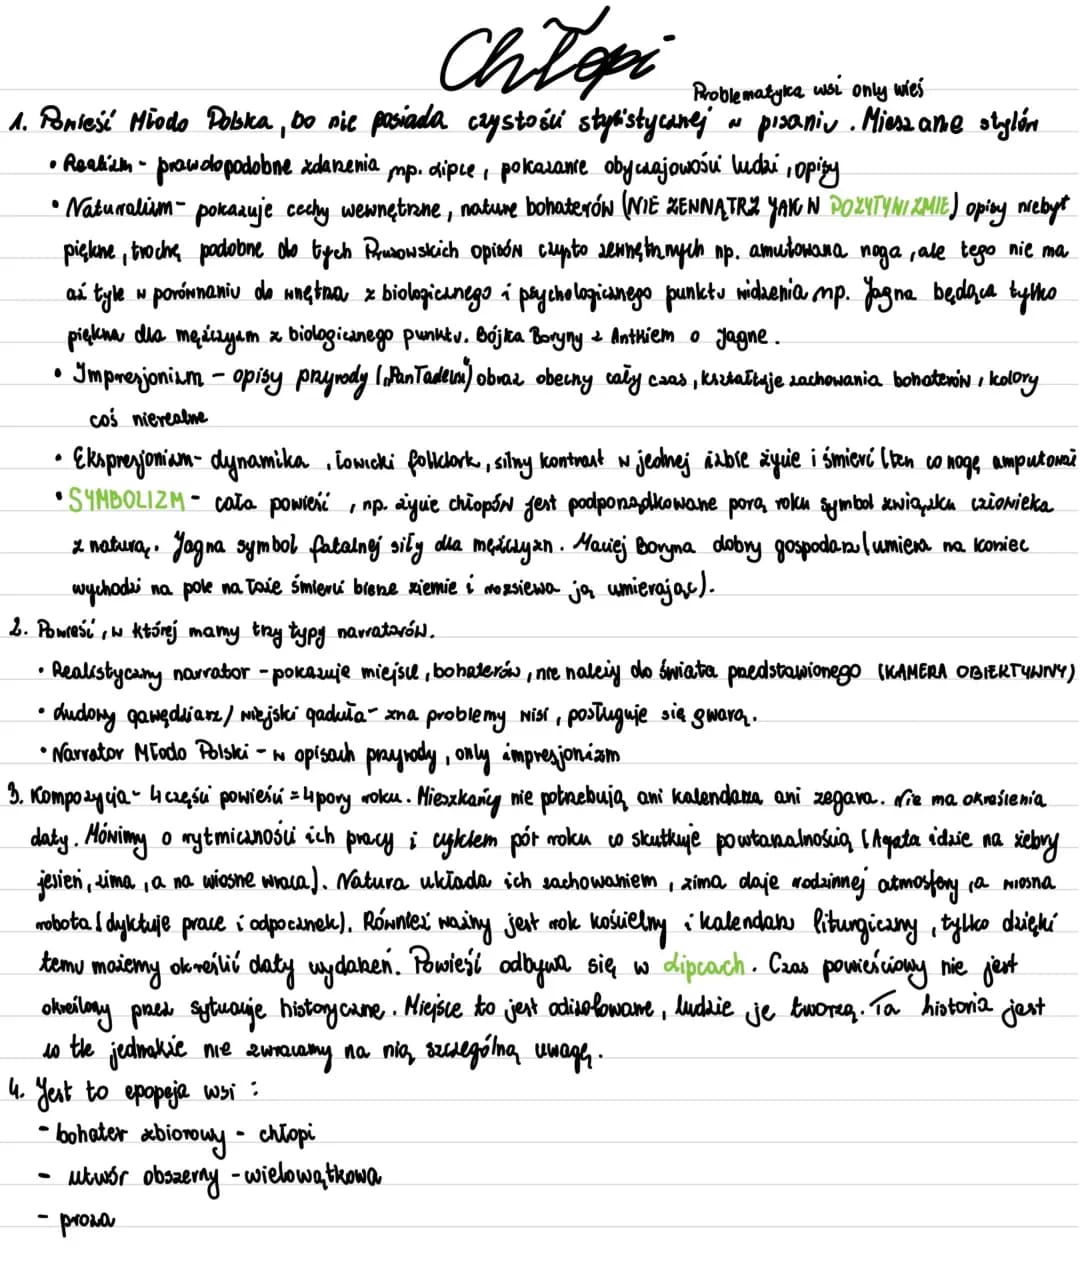 Chłopi
Problematyka wsi only wieś
1. Powieść Młodo Polska, bo nie posiada czystości stylistycznej w pisaniu. Mieszane stylów
• Realizm - prawdopodobne zdarzenia np. Lipce, pokazanie obyczajowości ludzi, opisy
• Naturalizm - pokazuje cechy wewnętrzne, nature bohaterów (NIE ZEWNĄTRZ JAK W POZYTYWIZMIE) opisy niebyt
piękne, trochę podobne do tych Prusowskich opisów czysto zewnętrznych np. amutowana noga, ale tego nie ma
aż tyle w porównaniu do wnętrza z biologicznego i psychologicznego punktu widzenia np. Jagna będąca tylko
piękna dla mężczyzm z biologicznego punktu. Bójka Boryny z Antkiem o Jagne.
• Impresjonizm - opisy przyrody („Pan Tadeusz”) obraz obecny cały czas, kształtuje zachowania bohaterów, kolory
coś nierealne
• Ekspresjonizm - dynamika, łowicki folklork, silny kontrast w jednej izbie życie i śmierć (ten co nogę amputował
• SYMBOLIZM - cała powieść, np. życie chłopów jest podporządkowane porą roku symbol związku człowieka
z naturą. Jagna symbol fatalnej siły dla mężczyzn. Maciej Boryna dobry gospodarz (umiera na koniec
wychodzi na pole na łoże śmierci bierze ziemie i rozsiewa ją umierając).
2. Powieść, w której mamy trzy typy narratorów.
• Realistyczny narrator - pokazuje miejsce, bohaterów, nie należy do świata przedstawionego (KAMERA OBIEKTYWNY)
• Ludowy gawędziarz / wiejski gaduła - zna problemy wsi, posługuje się gwarą.
• Narrator Młodo Polski - w opisach przyrody, only impresjonizm
3. Kompozycja - 4 części powieści = 4 pory roku. Mieszkańcy nie potrzebują ani kalendarza ani zegara. Nie ma określenia
daty. Mówimy o rytmiczności ich pracy i cyklem pór roku co skutkuje powtarzalnością (Agata idzie na żebry
jesień, zima, a na wiosne wraca). Natura układa ich zachowaniem, zima daje rodzinnej atmosfery, a wiosna
robota (dyktuje prace i odpoczynek). Również ważny jest rok kościelny i kalendarz liturgiczny, tylko dzięki
temu możemy określić daty wydarzeń. Powieść odbywa się w Lipcach. Czas powieściowy nie jest
określony przez sytuacje historyczne. Miejsce to jest odizolowane, ludzie je tworzą. Ta historia jest
w tle jednakże nie zwracamy na nią szczególną uwagę.
4. Jest to epopeja wsi:
- bohater zbiorowy - chłopi
- utwór obszerny - wielowątkowa
- proza